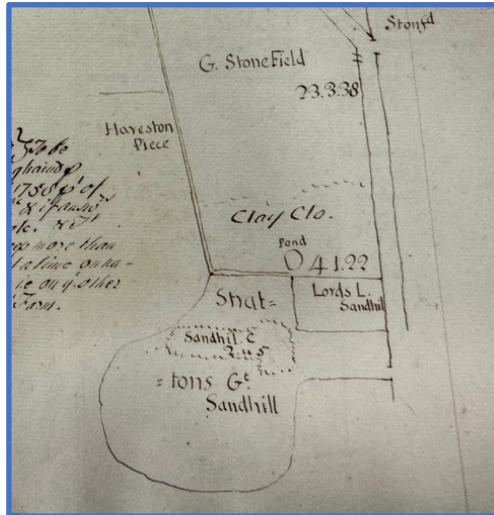 Stonfd
G. Stonefield
23.3.38
Haveston
Piece
to be
1788 pd of
more than
a time on
on yr other
Farm.
Clay Clo.
Pond
4 1.22
Lords L.
Sandhil
Shat=
Sandhil. C
=tons Gt.
Sandhill